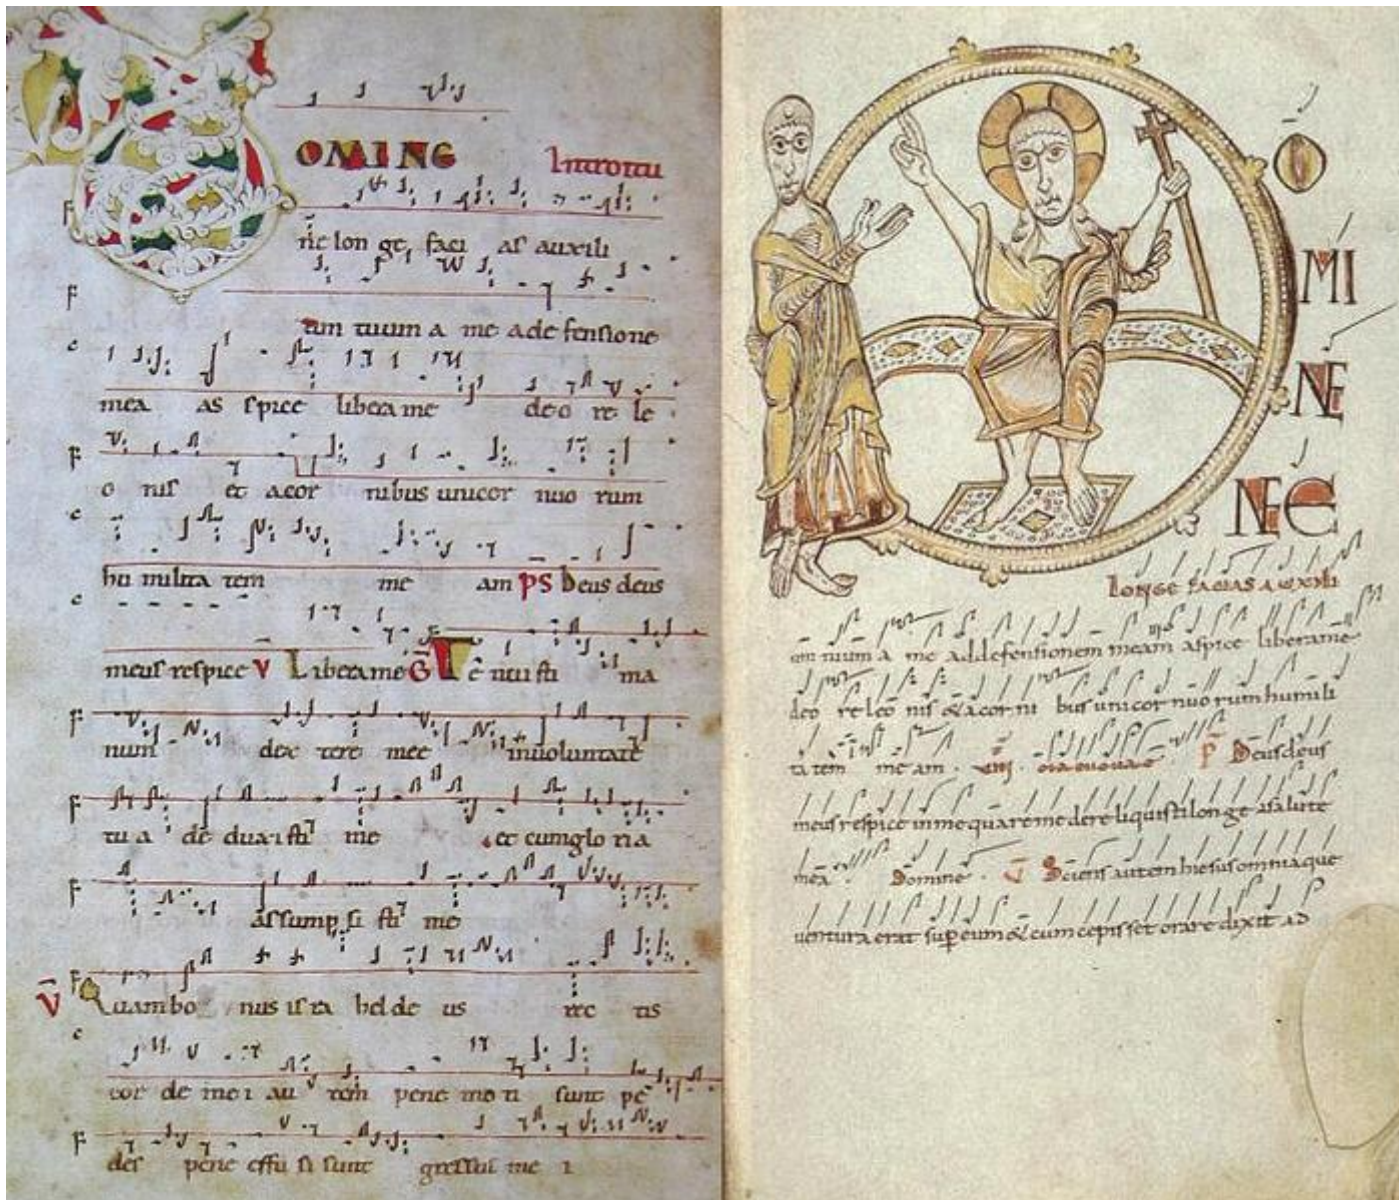 OMINE Introitu
ne lon ge faci as auxili
um tuum a me ad de fensione
mea as spice libera me de o re le
o nis et a cor nibus unicor nuo rum
hu milita tem me am ps Deus deus
meus respice v Libera me G Te nui sti ma
num dex tere mee in uoluntate
tu a de dux i sti me et cum glo ria
as sump si sti me
v Quam bo nus is ra hel de us rec tis
cor de me i au tem pene mo ti sunt pe
des pene effu si sunt gressus me i
O
MI
NE
NE
LONGE FACIAS AUXILI
um tuum a me ad defensionem meam aspice libera me
de o re leo nis & a cor ni bus uni cor nuo rum humili
ta tem me am P Deus deus
meus respice in me quare me dereliquisti longe a salute
mea Domine V Sciens autem hiesus omnia que
uentura erat sup eum & cum cepisset orare dixit ad